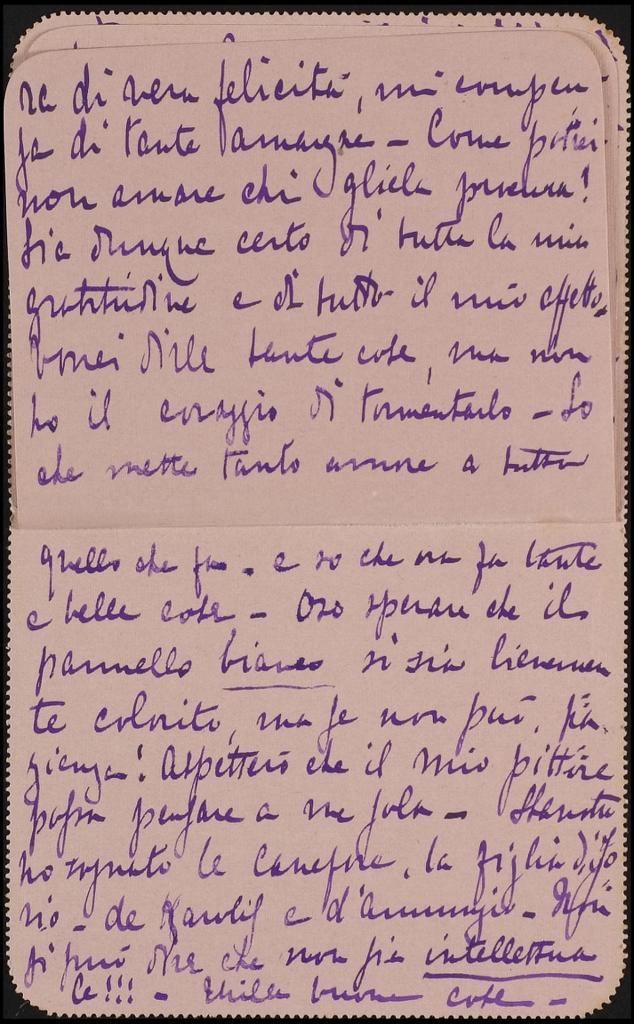 ra di vera felicità, mi compen-
sa di tante amarezze - Come potrei
non amare chi gliela procura!
Sia dunque certo di tutta la mia
gratitudine e di tutto il mio affetto.
Vorrei dirle tante cose, ma non
ho il coraggio di tormentarlo - So
che mette tanto amore a tutto
quello che fa - e so che ora fa tante
e belle cose - Oso sperare che il
pannello bianco si sia lievemen
te colorito, ma se non può, pa-
zienza! Aspetterò che il mio pittore
possa pensare a me sola - Stanotte
ho sognato le Canefore, la figlia di Jo
rio - de Karolis e d'Annunzio - Non
si può dire che non sia intellettua
le!!! - Mille buone cose -